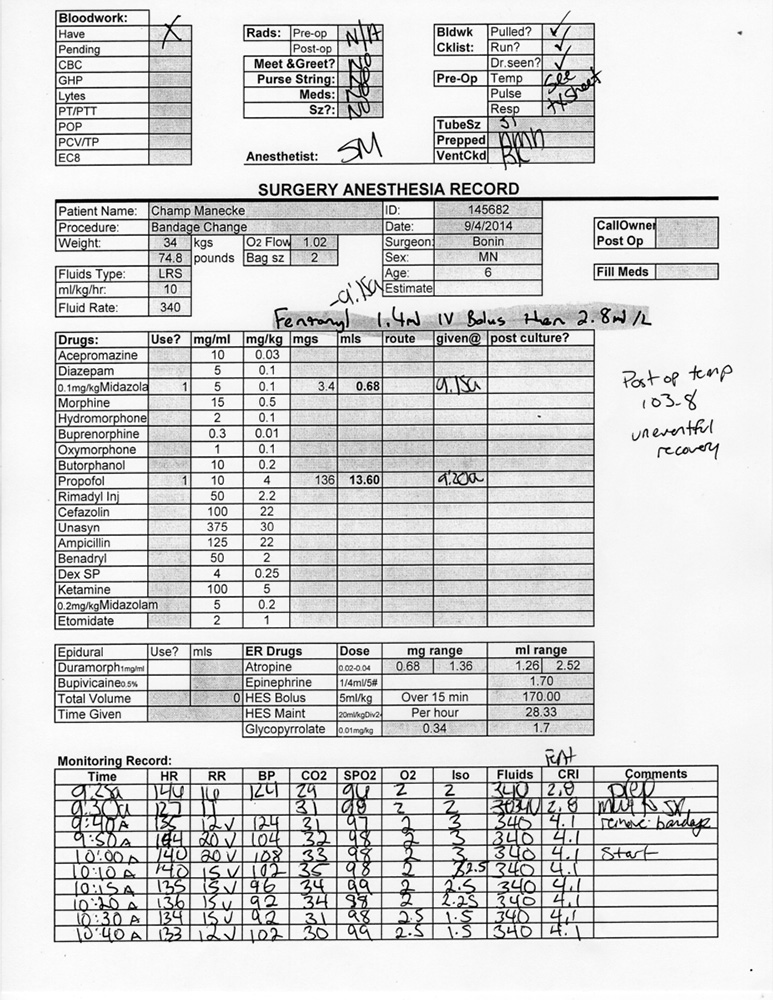 Bloodwork:
Have X
Pending
CBC
GHP
Lytes
PT/PTT
POP
PCV/TP
EC8
Rads: Pre-op N/A
Post-op
Meet &Greet? No
Purse String: No
Meds: No
Sz?: No
Anesthetist: SM
Bldwk Pulled? ✓
Cklist: Run? ✓
Dr.seen? ✓
Pre-Op Temp See
Pulse txsheet
Resp
TubeSz
Prepped
VentCkd
SURGERY ANESTHESIA RECORD
Patient Name: Champ Manecke ID: 145682
Procedure: Bandage Change Date: 9/4/2014
Weight: 34 kgs O2 Flow 1.02 Surgeon: Bonin
74.8 pounds Bag sz 2 Sex: MN
Fluids Type: LRS Age: 6
ml/kg/hr: 10 Estimate
Fluid Rate: 340
CallOwner
Post Op
Fill Meds
-9:15a
Fentanyl 1.4ml IV Bolus then 2.8ml/
Drugs: Use? mg/ml mg/kg mgs mls route given@ post culture?
Acepromazine 10 0.03
Diazepam 5 0.1
0.1mg/kgMidazola 1 5 0.1 3.4 0.68 9:15a
Morphine 15 0.5
Hydromorphone 2 0.1
Buprenorphine 0.3 0.01
Oxymorphone 1 0.1
Butorphanol 10 0.2
Propofol 1 10 4 136 13.60 9:20a
Rimadyl Inj 50 2.2
Cefazolin 100 22
Unasyn 375 30
Ampicillin 125 22
Benadryl 50 2
Dex SP 4 0.25
Ketamine 100 5
0.2mg/kgMidazolam 5 0.2
Etomidate 2 1
Post op temp
103.8
uneventful
recovery
Epidural Use? mls
Duramorph1mg/ml
Bupivicaine0.5%
Total Volume 0
Time Given
ER Drugs Dose mg range ml range
Atropine 0.02-0.04 0.68 1.36 1.26 2.52
Epinephrine 1/4ml/5# 1.70
HES Bolus 5ml/kg Over 15 min 170.00
HES Maint 20ml/kgDiv24 Per hour 28.33
Glycopyrrolate 0.01mg/kg 0.34 1.7
Monitoring Record:
Fent
Time HR RR BP CO2 SPO2 O2 Iso Fluids CRI Comments
9:25a 144 14 124 29 96 2 2 340 2.8 prep
9:30a 127 11 31 98 2 2 340 2.8 move to
9:40A 135 12V 124 31 97 2 3 340 4.1 remove bandage
9:50A 144 20V 104 32 98 2 3 340 4.1
10:00A 140 20V 108 33 98 2 3 340 4.1 Start
10:10A 140 15V 102 35 98 2 2.5 340 4.1
10:15A 135 15V 96 34 99 2 2.5 340 4.1
10:20A 136 15V 92 34 98 2 2.25 340 4.1
10:30A 134 15V 92 31 98 2.5 1.5 340 4.1
10:40A 133 12V 102 30 99 2.5 1.5 340 4.1